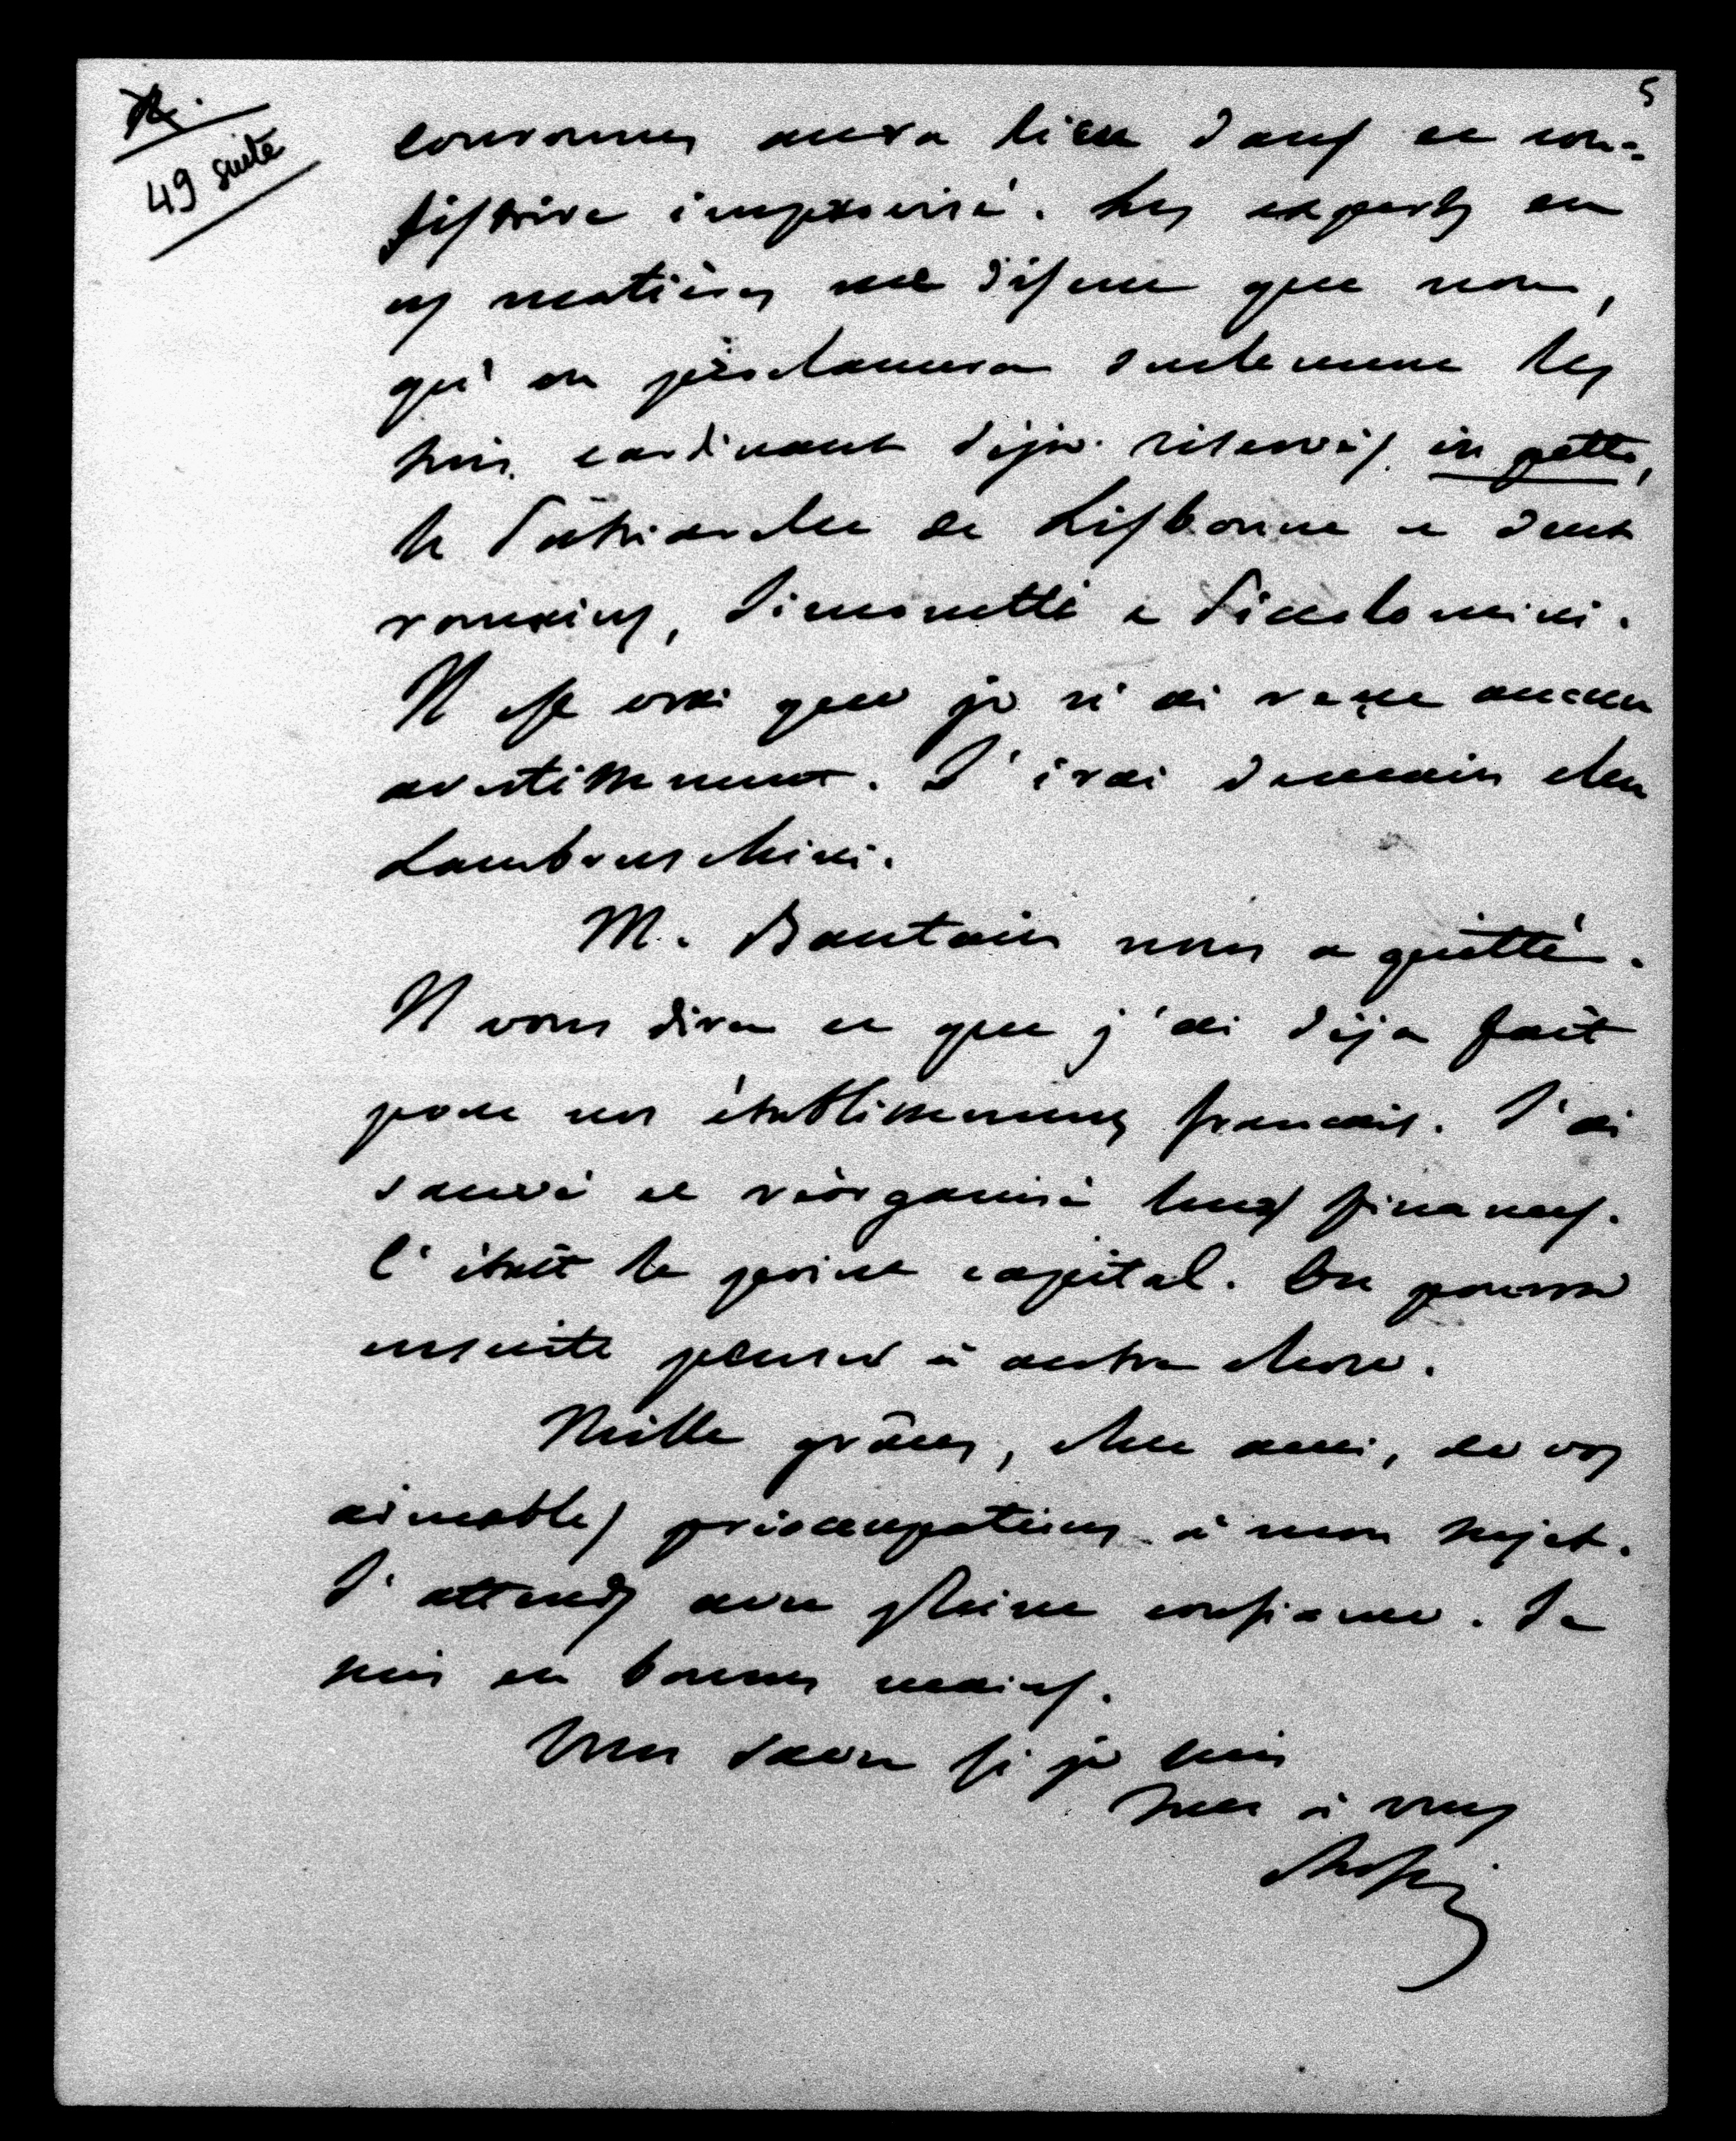 5
49 suite
couronnes aura lieu dans ce con-
sistoire improvisé. Les experts en
ces matières me disent que non,
qu'on proclamera seulement les
trois cardinaux déja réservés in petto,
le Patriarche de Lisbonne et deux
romains, Simonetti et Piccolomini.
Il est vrai que je n'ai reçu aucun
avertissement. J'irai demain chez
Lambruschini.
M. Bautain nous a quitté.
Il vous dira ce que j'ai déja fait
pour nos établissements français. J'ai
sauvé et réorganisé leurs finances.
C'était le point capital. On pourra
ensuite penser à autre chose.
Mille grâces, cher ami, de vos
aimables préoccupations à mon sujet.
J'attends avec pleine confiance. Je
suis en bonnes mains.
Vous savez si je suis
tout à vous
Rossi